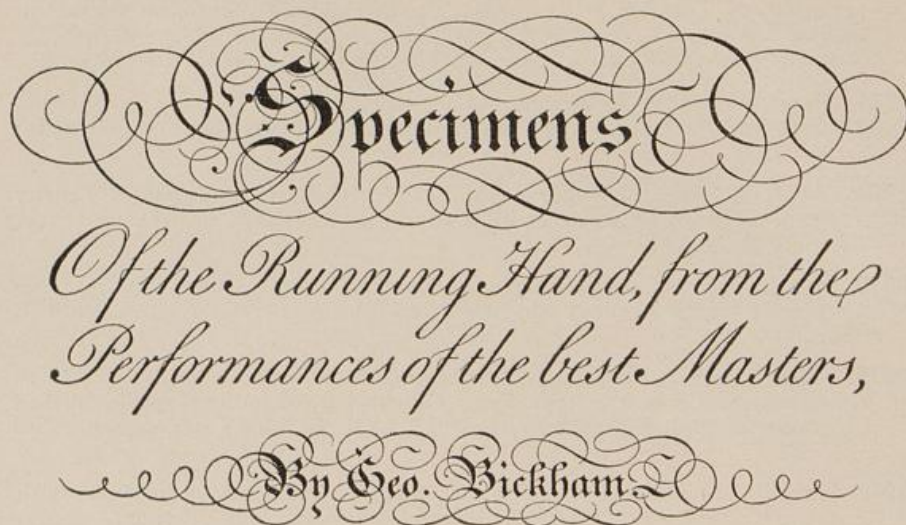 Specimens
Of the Running Hand, from the
Performances of the best Masters,
By Geo. Bickham.